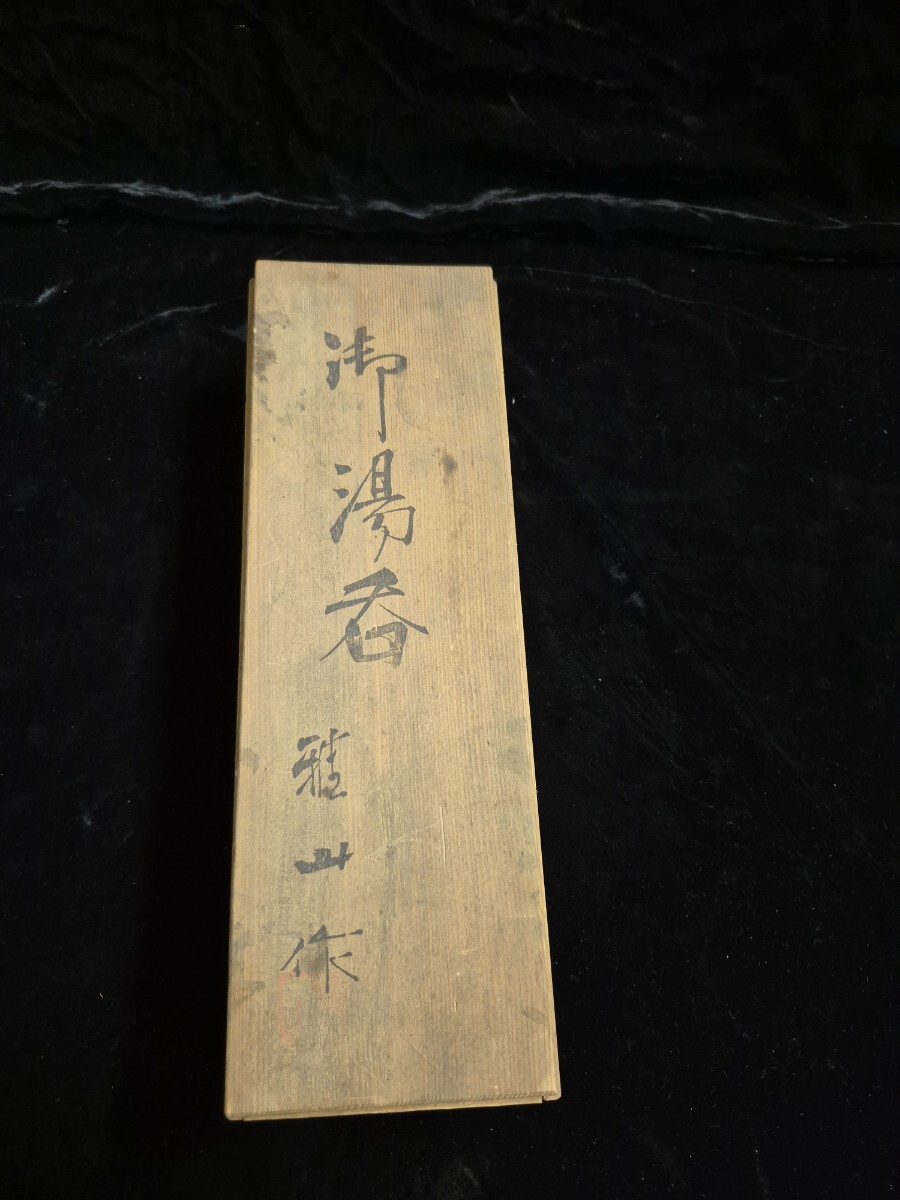 御湯呑
雅山作